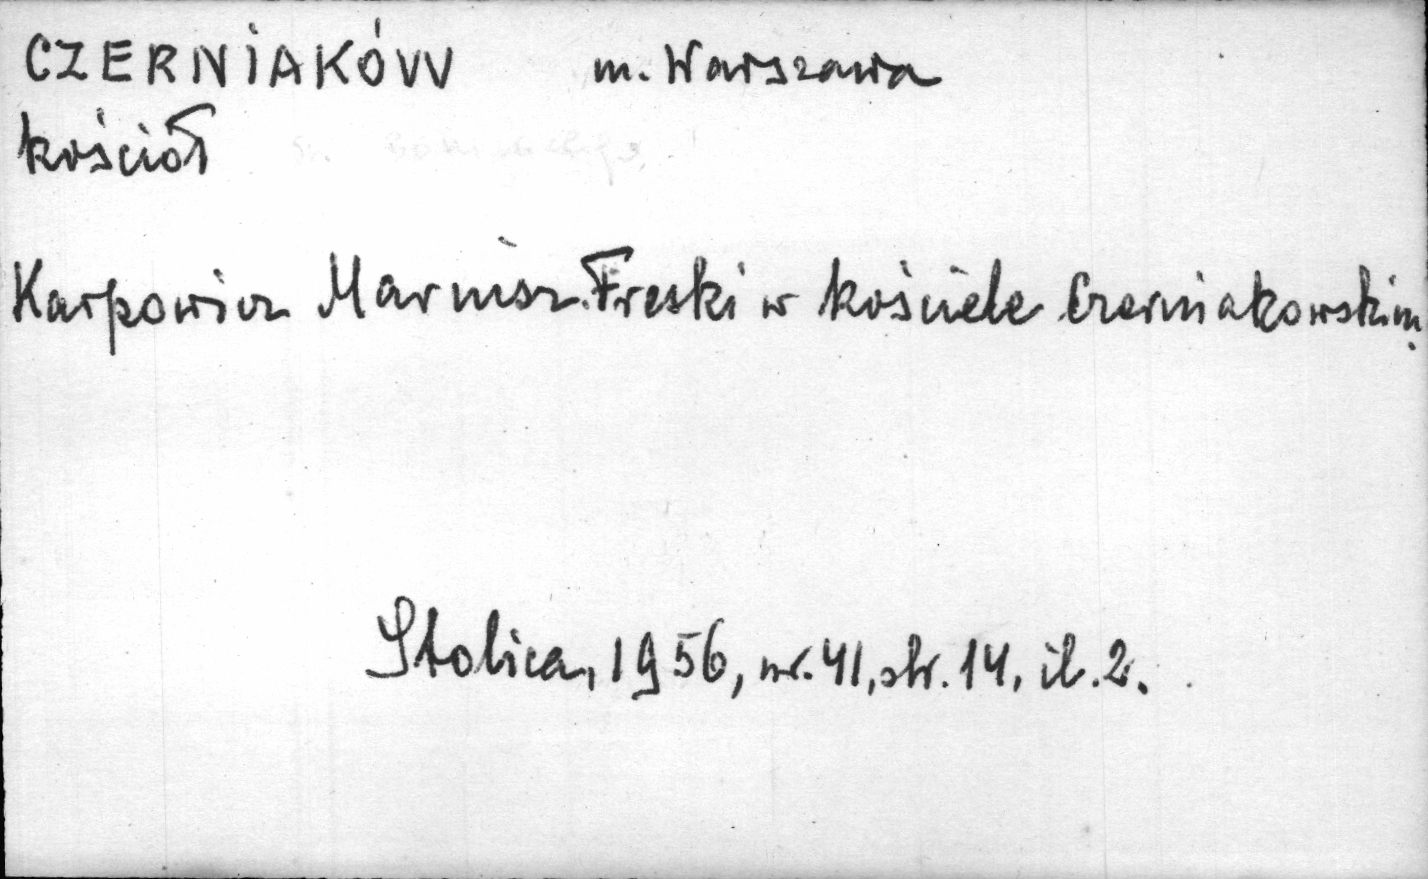 CZERNIAKÓW m. Warszawa
kościół
Karpowicz Mariusz. Freski w kościele Czerniakowskim.
Stolica, 1956, nr. 41, str. 14, il. 2.